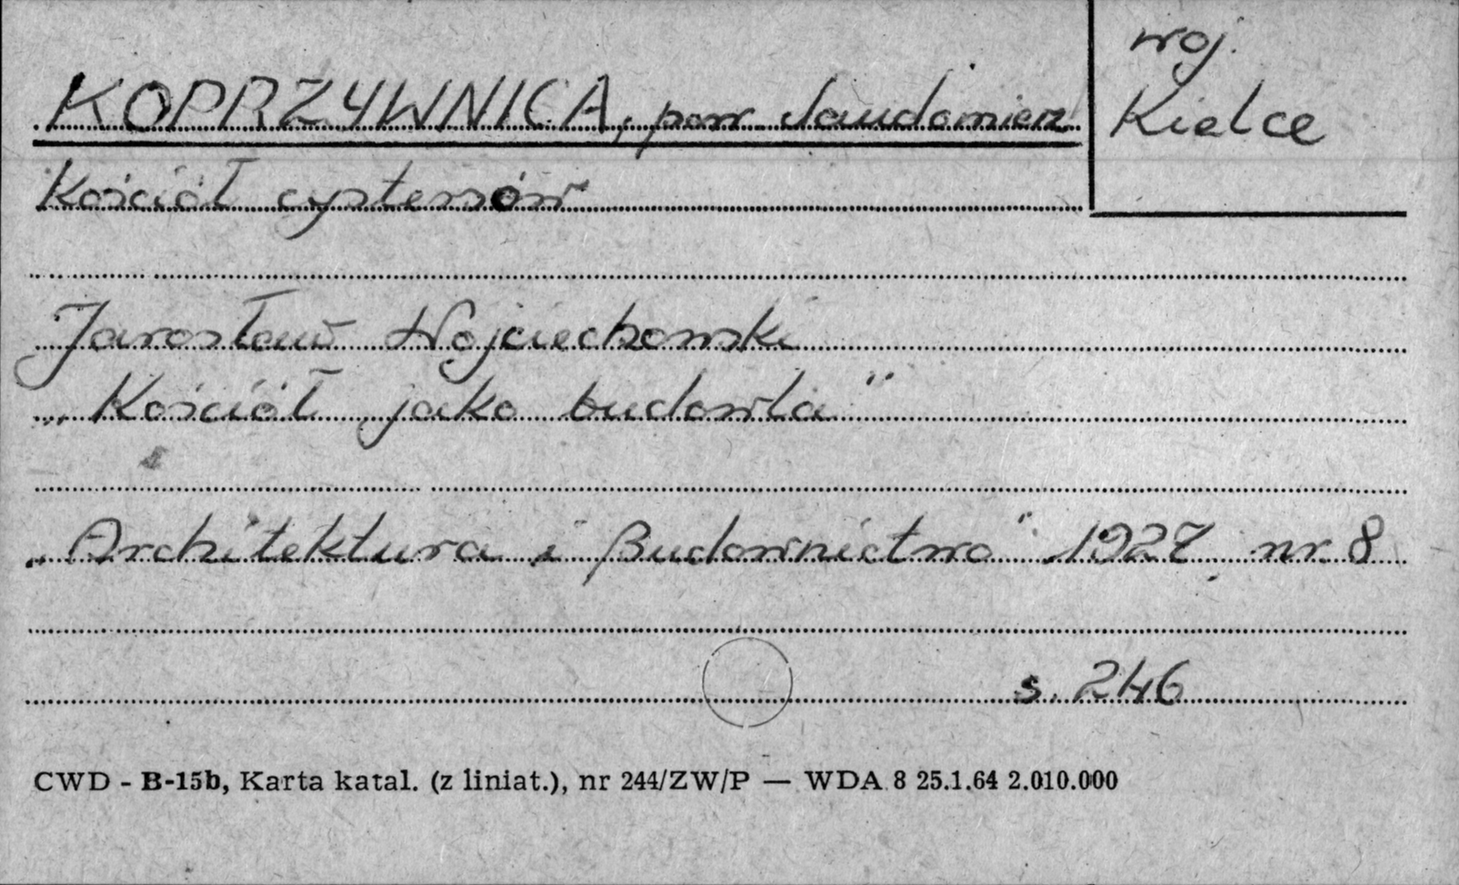 woj.
Kielce
KOPRZYWNICA, pow. Sandomierz
Kościół cystersów
Jarosław Wojciechowski
„Kościół jako budowla"
„Architektura i Budownictwo" 1927, nr 8
s. 246
CWD - B-15b, Karta katal. (z liniat.), nr 244/ZW/P — WDA 8 25.1.64 2.010.000